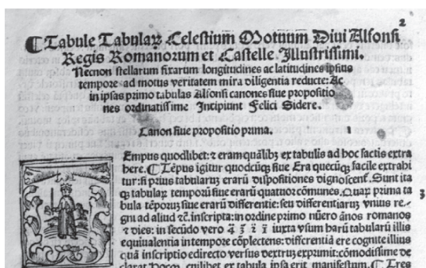 2
¶Tabule Tabulaꝝ Celestium Motuum Divi Alfonsi
Regis Romanoꝝum et Castelle Illustrissimi.
Necnon stellarum fixarum longitudines ac latitudines ipsius
tempore ad motus veritatem mira diligentia reducte: Ac
in ipsas primo tabulas Alfonsi canones siue propositio
nes ordinatissime Incipiunt Felici Sidere.
Canon siue propositio prima. 1
Empus quodlibet: ⁊ eram quālibꝫ ex tabulis ad hoc factis extra
here. ¶Tēpus igitur quodcūqꝫ siue Era quecūqꝫ facile extrabi
tur: si prius tabularum erarū dispositiones dignoscent̄. Sunt ita
qꝫ tabulaꝝ temporū siue erarū quatuor cōmunes. Quaꝝ prima ta
bula tēporuꝫ siue erarū differentie: seu differentiarum vnius re
gni ad aliud ⁊c̄. inscripta: in ordine primo nūero ānos romanos
⁊ dies: in secūdo vero iuxta vsum harū tabularū illis
equiualentia in tempore cōplectens: differentiā ere cognite illius
quā inscriptio edirecto versus dextrum exprimit: cōmodissime de